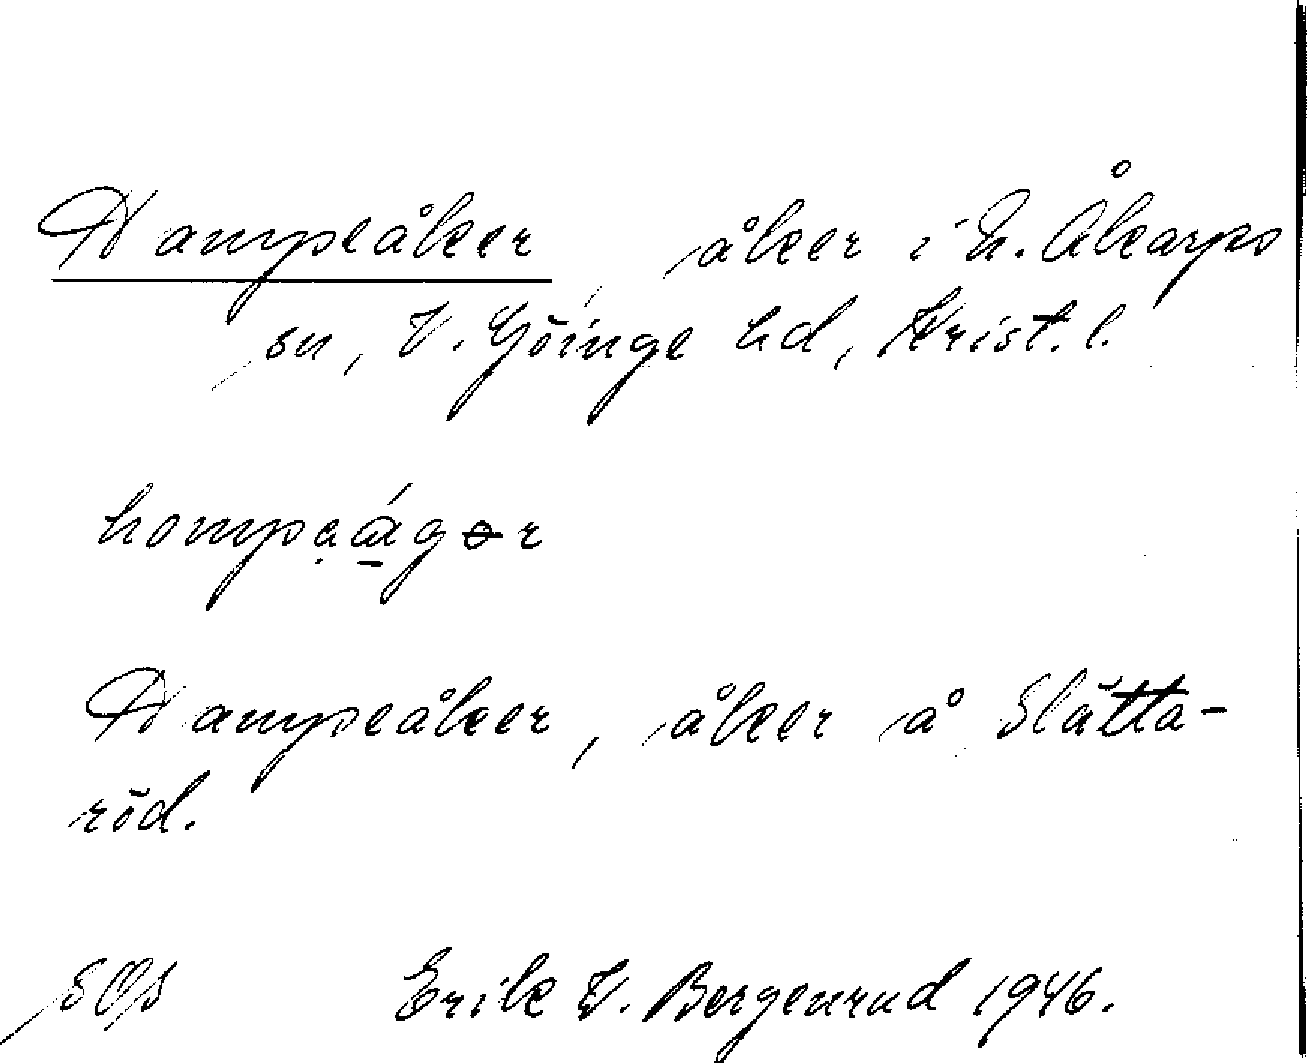 Hampeåker, åker i N. Åkarps
sn, V. Göinge hd, Krist. l.
hompaágər
Hampeåker, åker å Slätta-
röd.
SOs Erik W. Bergenrud 1946.